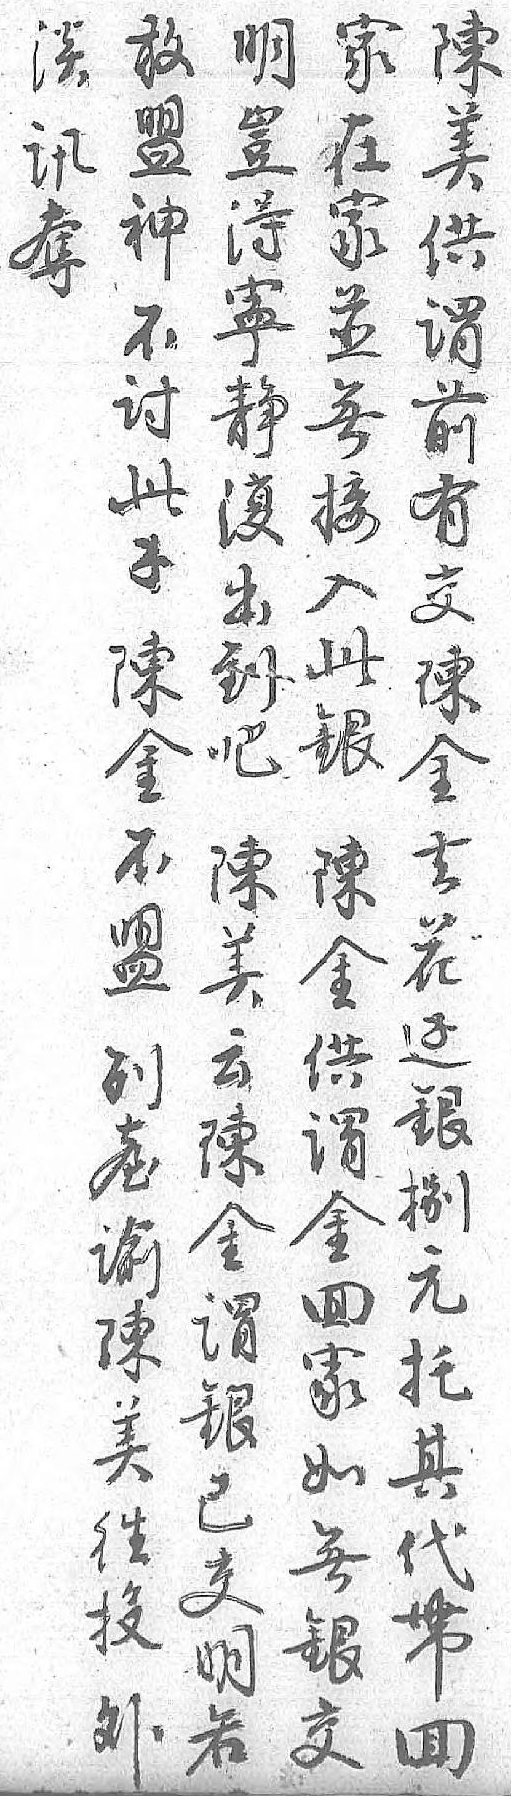 陳美供謂前有交陳金去花边銀捌元托其代帶回
家在家並無接入此銀　陳金供謂金回家如無銀交
明豈得寧静復出到吧　陳美云陳金謂銀已交明若
敢盟神不討此銀陳金不盟　列台諭陳美往投外
淡訊奪